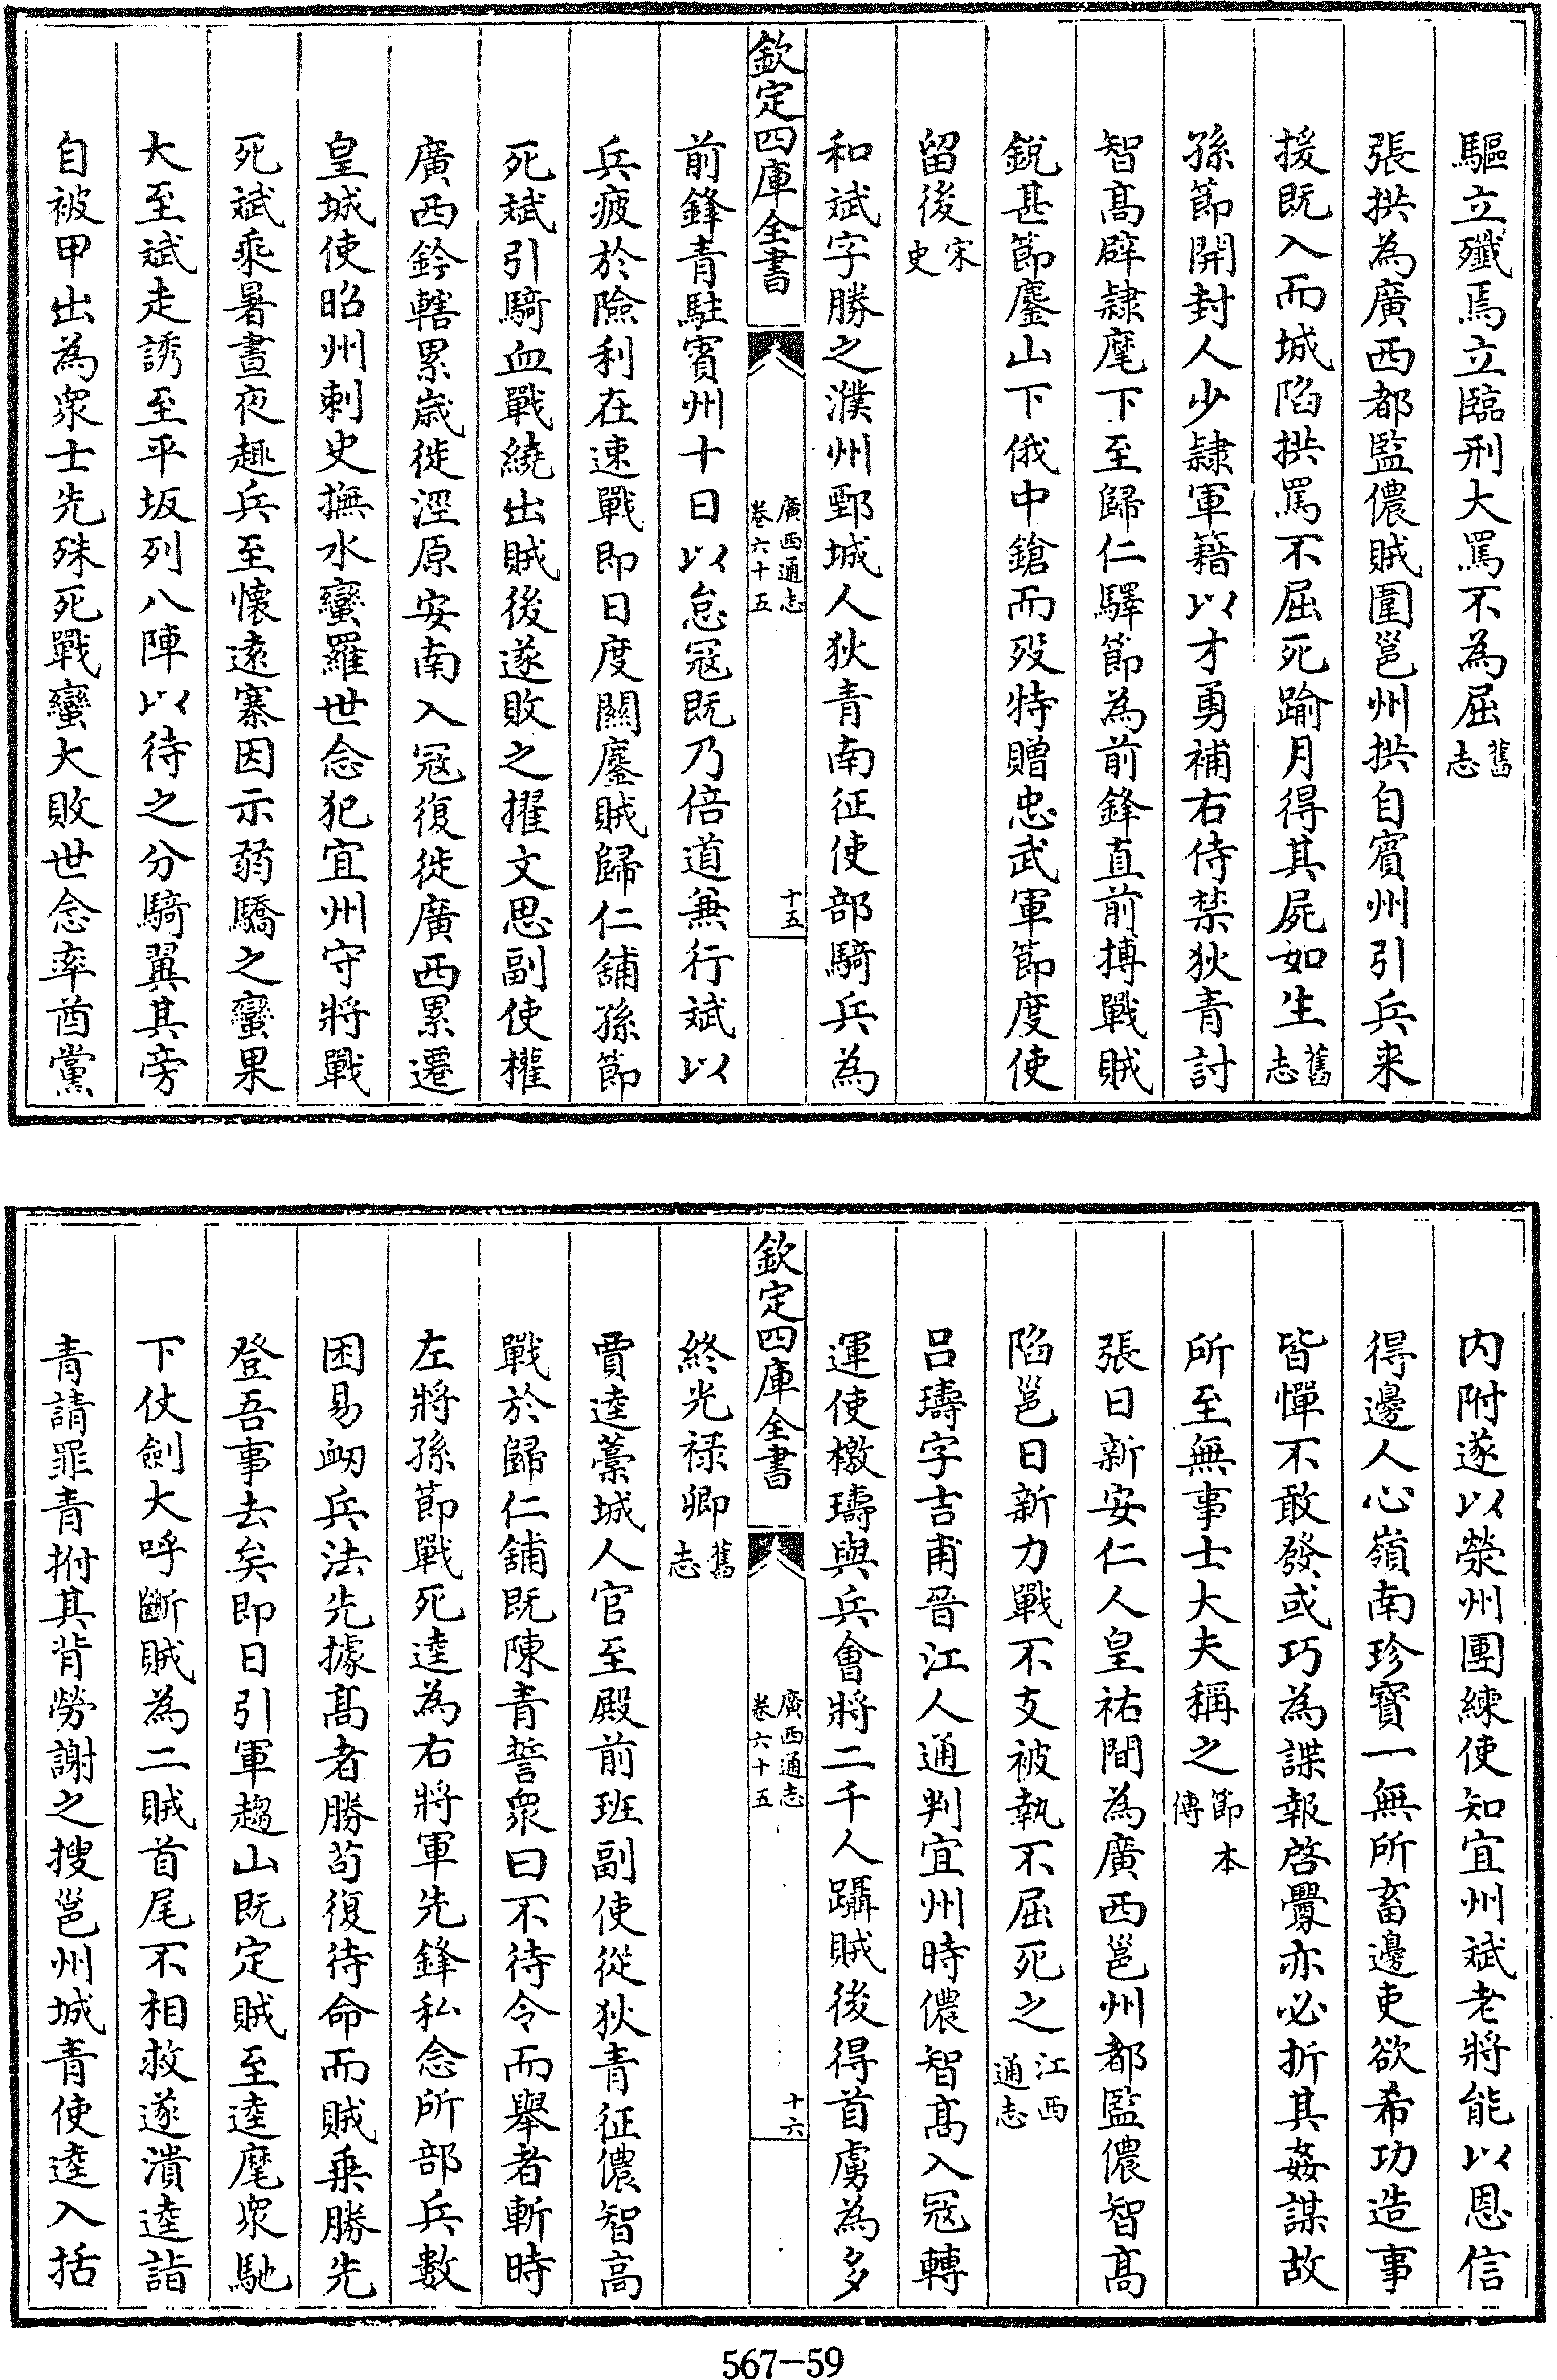 驅立殲焉立臨刑大罵不為屈舊志
張拱為廣西都監儂賊圍邕州拱自賓州引兵来
援既入而城陷拱罵不屈死踰月得其屍如生舊志
孫節開封人少隸軍籍以才勇補右侍禁狄青討
智髙辟隸麾下至歸仁驛節為前鋒直前搏戰賊
銳甚節鏖山下俄中鎗而殁特贈忠武軍節度使
留後宋史
和斌字勝之濮州鄄城人狄青南征使部騎兵為
欽定四庫全書
廣西通志
卷六十五
十五
前鋒青駐賓州十日以怠冦既乃倍道兼行斌以
兵疲於險利在速戰即日度關鏖賊歸仁舖孫節
死斌引騎血戰繞出賊後遂敗之擢文思副使權
廣西鈐轄累歲徙涇原安南入冦復徙廣西累遷
皇城使昭州刺史撫水蠻羅世念犯宜州守將戰
死斌乘暑晝夜趣兵至懷逺寨因示弱驕之蠻果
大至斌走誘至平坂列八陣以待之分騎翼其旁
自被甲出為衆士先殊死戰蠻大敗世念率酋黨
内附遂以滎州團練使知宜州斌老將能以恩信
得邊人心嶺南珍寳一無所畜邊吏欲希功造事
皆憚不敢發或巧為諜報啓釁亦必折其姦謀故
所至無事士大夫稱之節本傳
張日新安仁人皇祐間為廣西邕州都監儂智髙
陷邕日新力戰不支被執不屈死之江西通志
吕璹字吉甫晉江人通判宜州時儂智髙入冦轉
運使檄璹與兵會將二千人躡賊後得首虜為多
欽定四庫全書
廣西通志
卷六十五
十六
終光禄卿舊志
賈逵藁城人官至殿前班副使從狄青征儂智高
戰於歸仁舖既陳青誓衆曰不待令而舉者斬時
左將孫節戰死逵為右將軍先鋒私念所部兵數
困易衂兵法先據髙者勝茍復待命而賊乗勝先
登吾事去矣即日引軍趨山既定賊至逵麾衆馳
下仗劍大呼斷賊為二賊首尾不相救遂潰逵詣
青請罪青拊其背勞謝之搜邕州城青使逵入括
567-59